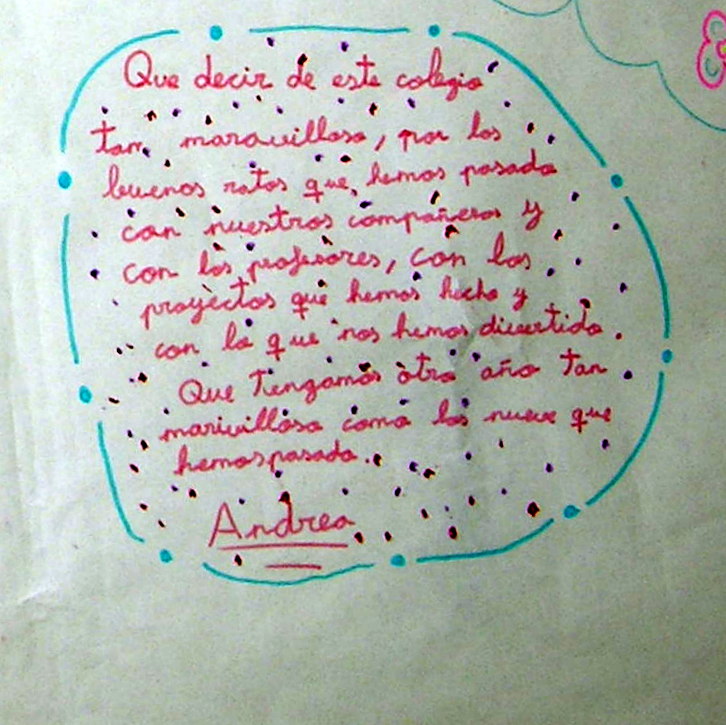 Que decir de este colegio
tan maravilloso, por los
buenos ratos que hemos pasado
con nuestros compañeros y
con los profesores, con los
proyectos que hemos hecho y
con lo que nos hemos divertido.
Que Tengamos otro año tan
marivilloso como los nueve que
hemos pasado.
Andrea